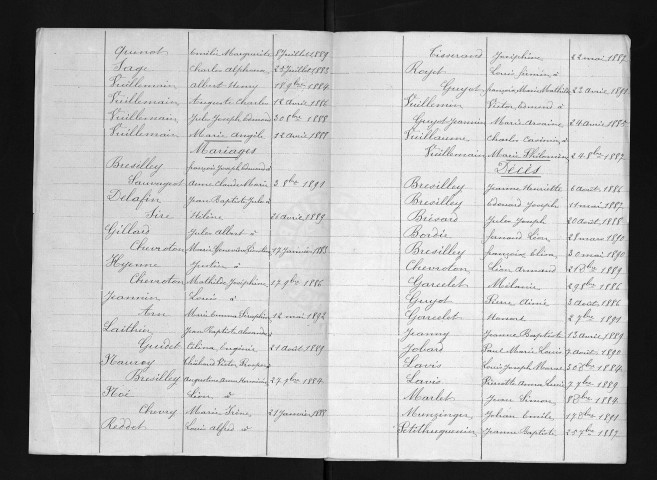 Quenot Emélie Marguerite 8 Juillet 1889
Sage Charles Alphonse 23 Juillet 1883
Vuillemain Albert Henry 18 9bre 1884
Vuillemain Auguste Charles 12 Avril 1886
Vuillemain Jules Joseph Edmond 30 8bre 1888
Vuillemain Marie Angèle 12 Avril 1888
Mariages
Bresilley françois Joseph Edmond à
Sauvageot Anne Claude Marie 3 8bre 1891
Delafin Jean Baptiste Jules à
Sire Hélène 26 avril 1889
Gillard Jules Albert à
Chevroton Marie Geneviève 17 Janvier 1888
Hyenne Justin à
Chevroton Mathilde Joséphine 17 9bre 1886
Jeannin Louis à
Ann Marie Emma Séraphine 12 mai 1892
Laithier Jean Baptiste Alexandre à
Guedet Célina Eugénie 21 août 1889
Mauvoy Prosper à
Bresilley Augustine Anne Herminie 27 9bre 1884
Noé Léon à
Chevry Marie Irène 21 Janvier 1888
Reddet Louis alfred à
Tisserand Joséphine 22 mai 1887
Royet Louis firmin à
Guyot françoise Marie Mathilde 22 avril 1890
Vuillemin Victor Edmond à
Guyot Jeannin Marie 24 Avril 1885
Vuillaume Charles Casimir à
Vuillemain Marie Philomène 24 8bre 1887
Décès
Bresilley Jeanne Henriette 6 août 1886
Bresilley Edouard Joseph 11 mai 1887
Brévard Jules Joseph 20 août 1888
Bordie fernand Léon 28 mars 1890
Bresilley françoise 30 mai 1890
Chevroton Léon Armand 26 Xbre 1889
Garrelet Mélanie 29 8bre 1886
Guyot Pierre Aimé 3 août 1886
Garrelet Honoré 2 7bre 1891
Jeanny Jeanne Baptiste 13 avril 1889
Jobard Paul Marie Louis 7 août 1890
Lavis Louis Joseph Marcel 30 Xbre 1884
Lavis Pierrette Anna Louise 7 9bre 1889
Marlet Jean Simon 8 Xbre 1884
Munzinger Johan Emile 17 Xbre 1891
Petithuguenin Jeanne Baptiste 20 7bre 1887